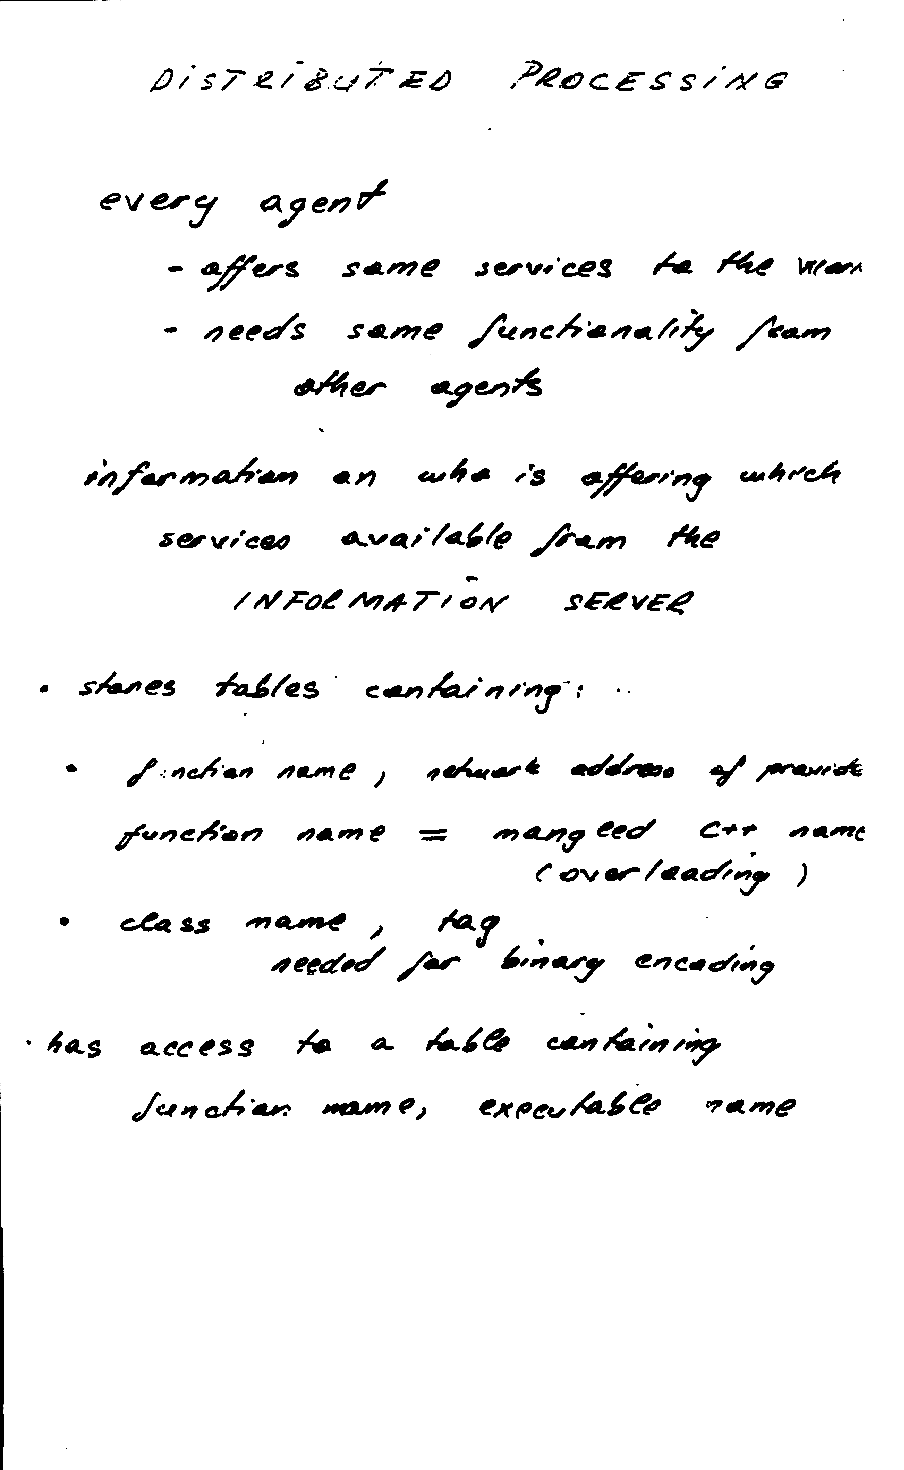 DISTRIBUTED PROCESSING
every agent
- offers some services to the
- needs some functionality from
other agents
information on who is offering which
services available from the
INFORMATION SERVER
• stores tables containing:
• function name, network address of provide
function name = mangeed C++ name
(overloading)
• class name, tag
needed for binary encoding
• has access to a table containing
function name, executable name